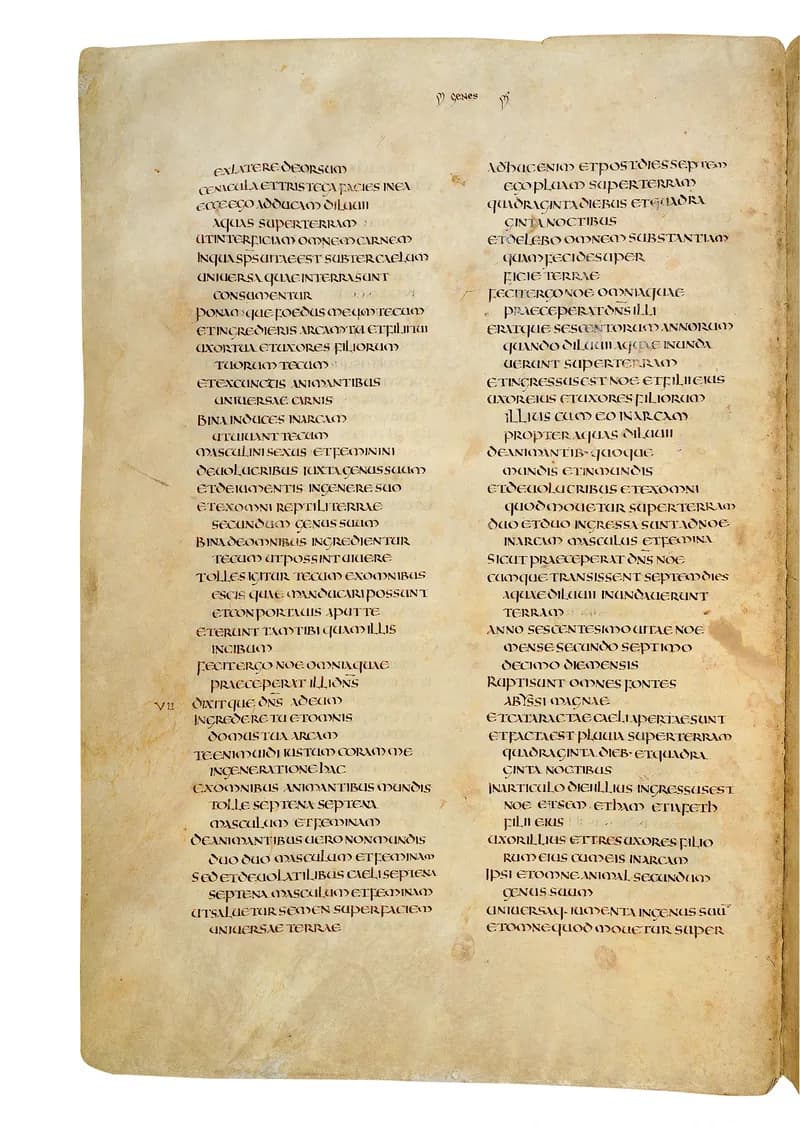 GENES
EXLATERE DEORSUM
CENACULA ETTRISTEGA FACIES INEA
ECCE EGO ADDUCAM DILUUII
AQUAS SUPERTERRAM
UTINTERFICIAM OMNEM CARNEM
INQUA SPS UITAE EST SUBTER CAELUM
UNIUERSA QUAE INTERRA SUNT
CONSUMENTUR
PONAMQUE FOEDUS MEUM TECUM
ETINGREDIERIS ARCAM TU ETFILII TUI
UXOR TUA ETUXORES FILIORUM
TUORUM TECUM
ETEXCUNCTIS ANIMANTIBUS
UNIUERSAE CARNIS
BINA INDUCES INARCAM
UTUIUANT TECUM
MASCULINI SEXUS ETFEMININI
DEUOLUCRIBUS IUXTA GENUS SUUM
ETDEIUMENTIS INGENERE SUO
ETEXOMNI REPTILI TERRAE
SECUNDUM GENUS SUUM
BINA DEOMNIBUS INGREDIENTUR
TECUM UTPOSSINT UIUERE
TOLLES IGITUR TECUM EXOMNIBUS
ESCIS QUAE MANDUCARI POSSUNT
ETCONPORTAUIS APUT TE
ETERUNT TAM TIBI QUAM ILLIS
INCIBUM
FECIT ERGO NOE OMNIA QUAE
PRAECEPERAT ILLI DNS
VII DIXITQUE DNS ADEUM
INGREDERE TU ETOMNIS
DOMUS TUA ARCAM
TE ENIM UIDI IUSTUM CORAM ME
INGENERATIONE HAC
EXOMNIBUS ANIMANTIBUS MUNDIS
TOLLE SEPTENA SEPTENA
MASCULUM ETFEMINAM
DEANIMANTIBUS UERO NONMUNDIS
DUO DUO MASCULUM ETFEMINAM
SED ETDEUOLATILIBUS CAELI SEPTENA
SEPTENA MASCULUM ETFEMINAM
UTSALUETUR SEMEN SUPERFACIEM
UNIUERSAE TERRAE
ADHUC ENIM ETPOST DIES SEPTEM
EGO PLUAM SUPERTERRAM
QUADRAGINTA DIEBUS ETQUADRA
GINTA NOCTIBUS
ETDELEBO OMNEM SUBSTANTIAM
QUAM FECI DESUPER
FICIE TERRAE
FECIT ERGO NOE OMNIA QUAE
PRAECEPERAT DNS ILLI
ERATQUE SESCENTORUM ANNORUM
QUANDO DILUUII AQUAE INUNDA
UERUNT SUPERTERRAM
ETINGRESSUS EST NOE ETFILII EIUS
UXOR EIUS ETUXORES FILIORUM
ILLIUS CUM EO INARCAM
PROPTER AQUAS DILUUII
DEANIMANTIB· QUOQUE
MUNDIS ETINMUNDIS
ETDEUOLUCRIBUS ETEXOMNI
QUOD MOUETUR SUPERTERRAM
DUO ETDUO INGRESSA SUNT ADNOE
INARCAM MASCULUS ETFEMINA
SICUT PRAECEPERAT DNS NOE
CUMQUE TRANSISSENT SEPTEM DIES
AQUAE DILUUII INUNDAUERUNT
TERRAM
ANNO SESCENTESIMO UITAE NOE
MENSE SECUNDO SEPTIMO
DECIMO DIE MENSIS
RUPTI SUNT OMNES FONTES
ABYSSI MAGNAE
ETCATARACTAE CAELI APERTAE SUNT
ETFACTA EST PLUUIA SUPERTERRAM
QUADRAGINTA DIEB· ETQUADRA
GINTA NOCTIBUS
INARTICULO DIEI ILLIUS INGRESSUS EST
NOE ETSEM ETHAM ETIAFETH
FILII EIUS
UXOR ILLIUS ETTRES UXORES FILIO
RUM EIUS CUM EIS INARCAM
IPSI ETOMNE ANIMAL SECUNDUM
GENUS SUUM
UNIUERSAQ· IUMENTA INGENUS SUU
ETOMNE QUOD MOUETUR SUPER